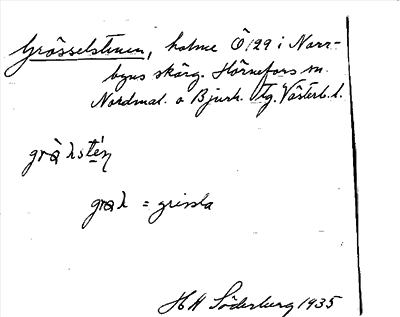 Grösselstenen, holme Ö 129 i Norr-
byns skärg. Hörnefors sn.
Nordmal. o Bjurh. tg. Västerb. l.
gràkstén
grak = grissla
H H Söderburg 1935